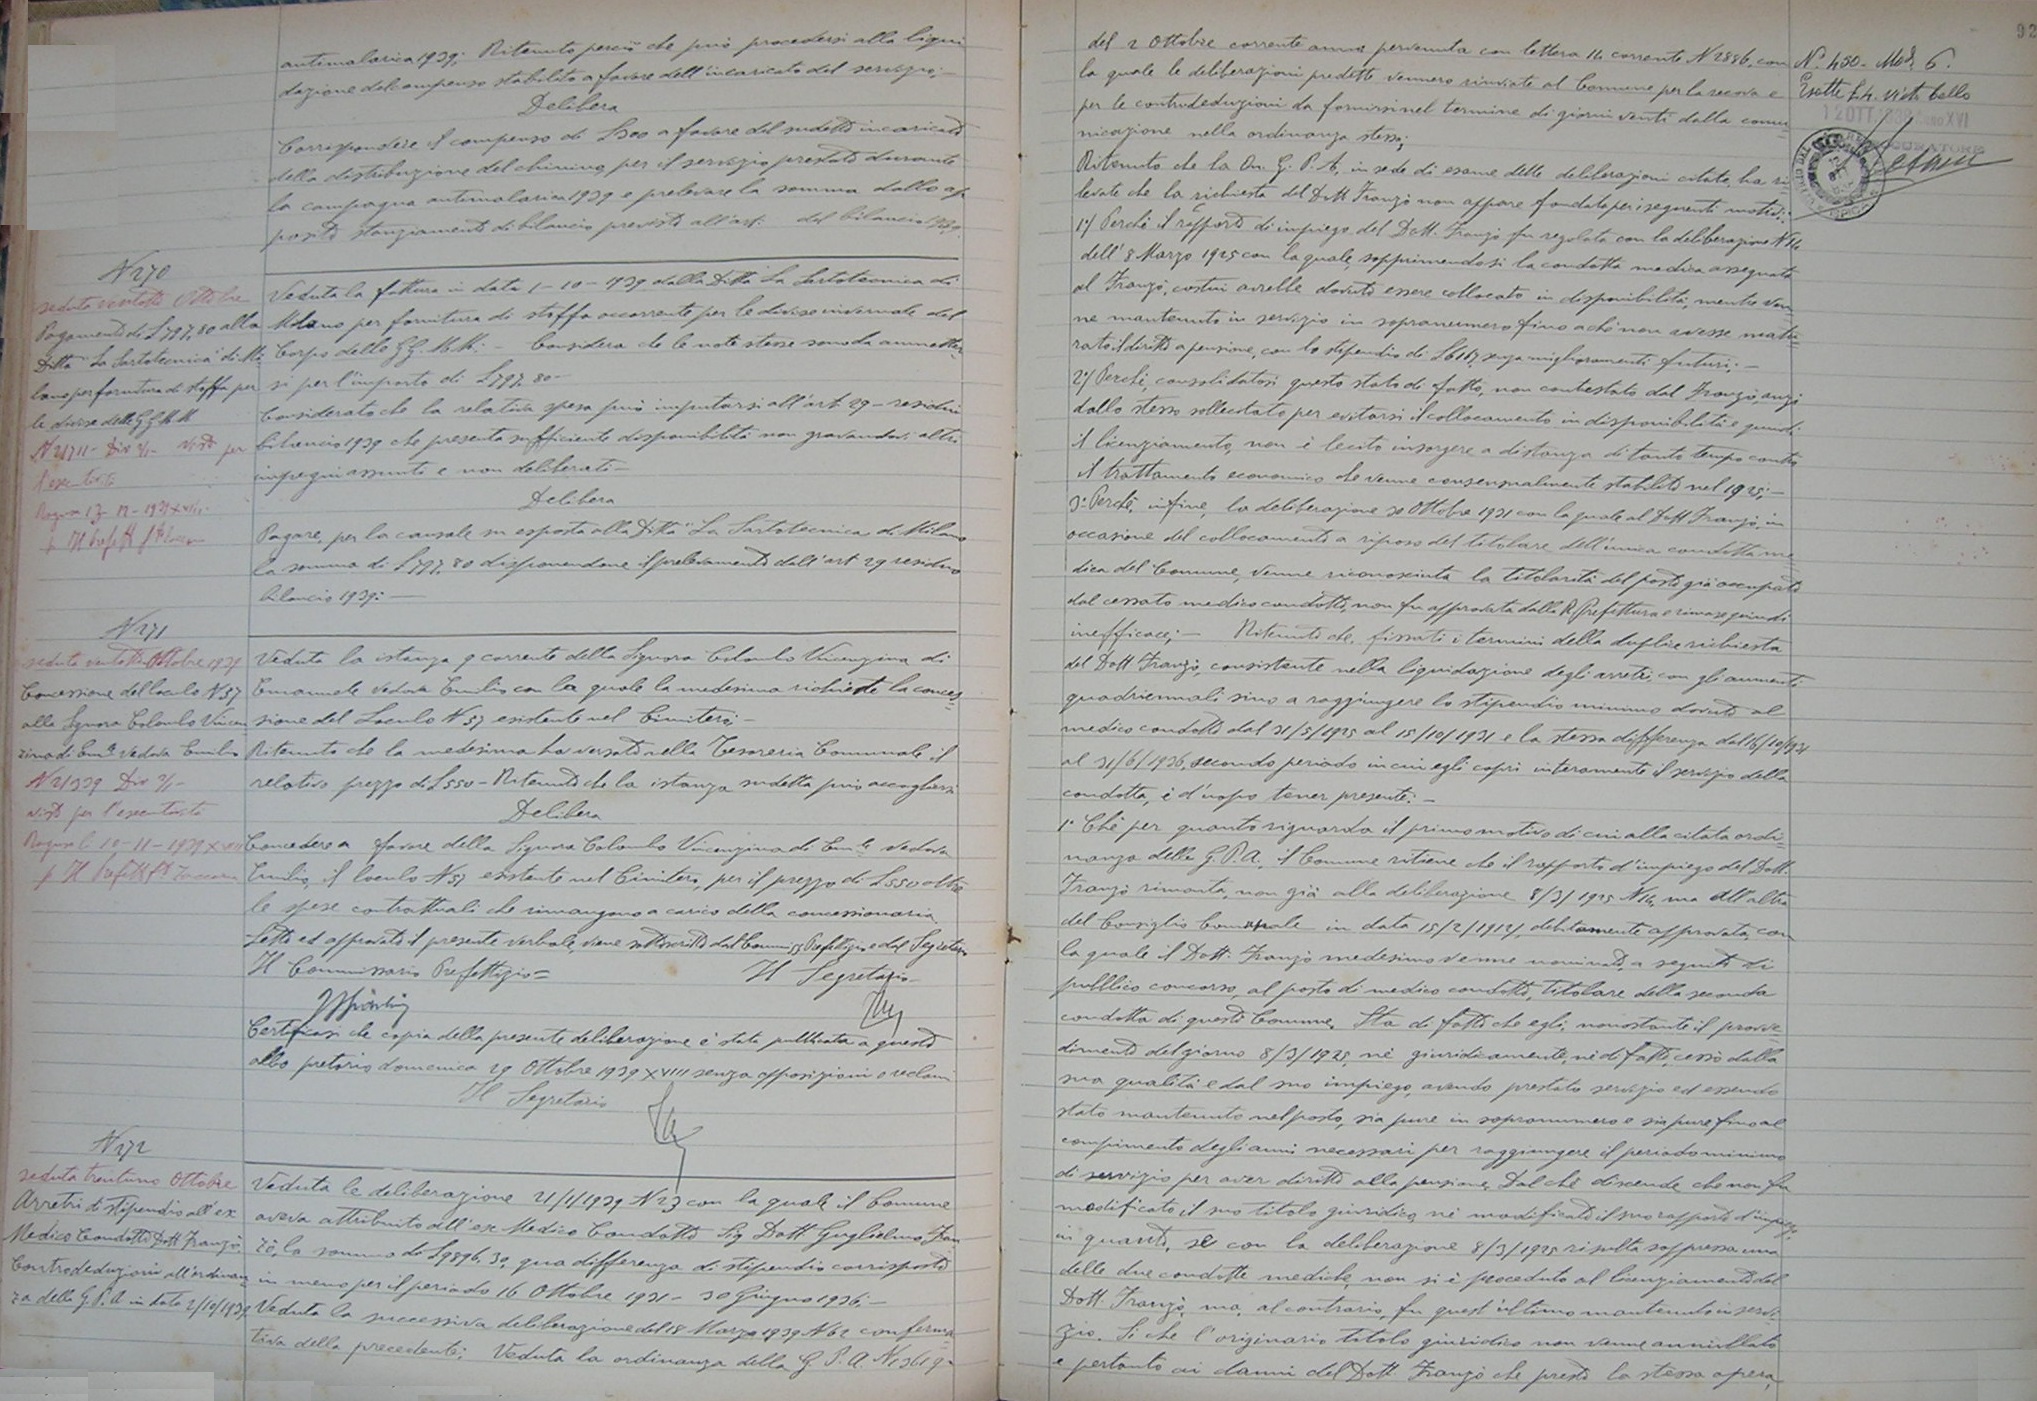 antimalarica 1939; Ritenuto perciò che può procedersi alla liqui
dazione del compenso stabilito a favore dell'incaricato del servizio;
Delibera
Corrispondere il compenso di L 300 a favore del sudetto incaricato
della distribuzione del chinino, per il servizio prestato durante
la campagna antimalarica 1939 e prelevare la somma dallo ap
posito stanziamento di bilancio previsto all'art. del bilancio 1939.
N 270
seduta ventotto Ottobre
Pagamento di L 797,80 alla
Ditta "La Sartotecnica" di Mi
lano per fornitura di stoffa per
le divise delle G G. M M
N 21711 - Div 2/1 - Visto per
l'esecutività
Ragusa 13 - 12 - 1939 XVIII
p Il Prefetto
Veduta la fattura in data 1 - 10 - 939 della Ditta La Sartotecnica di
Milano per fornitura di stoffa occorrente per le divise invernale del
Corpo delle G G. M. M. - Considera che le note stesse sono da ammetter
si per l'importo di L 797,80 -
Considerato che la relativa spesa può imputarsi all'art 29 - residui
bilancio 1939 che presenta sufficiente disponibilità non gravandovi altri
impegni assunti e non deliberati -
Delibera
Pagare, per la causale su esposta alla Ditta "La Sartotecnica di Milano
la somma di L 797,80 disponendone il prelevamento dall'art 29 residuo
bilancio 1939: -
N 271
seduta ventotto Ottobre 1939
Concessione del loculo N 57
alla Signora Colombo Vincen
zina di Em.le vedova Emilio
N 21339 Div 2/1 -
visto per l'esecutività
Ragusa li 10 - 11 - 1939 XVIII
p Il Prefetto
Veduta la istanza 9 corrente della Signora Colombo Vincenzina di
Emanuele vedova Emilio con la quale la medesima richiede la conces
sione del Loculo N 57 esistente nel Cimitero; -
Ritenuto che la medesima ha versato nella Tesoreria Comunale il
relativo prezzo di L 550 - Ritenuto che la istanza sudetta può accogliersi
Delibera
Concedere a favore della Signora Colombo Vincenzina di Em.le vedova
Emilio, il loculo N 57 esistente nel Cimitero, per il prezzo di L 550 oltre
le spese contrattuali che rimangono a carico della concessionaria.
Letto ed approvato il presente verbale, viene sottoscritto dal Commiss Prefettizio e dal Segretario
Il Commissario Prefettizio = Il Segretario
Certificasi che copia della presente deliberazione è stata pubblicata a questo
albo pretorio domenica 29 Ottobre 1939 XVIII senza opposizioni o reclami
Il Segretario
N 272
seduta trentuno Ottobre
Arretri di stipendio all'ex
Medico Condotto Dott Franzò.
Controdeduzioni all'ordinan
za della G. P. A in data 2/10/1939
Veduta le deliberazione 21/1/1939 N 23 con la quale il Comune
aveva attribuito all'ex Medico Condotto Sig Dott Guglielmo Fran
zò, la somma di L 9896,30, qua differenza di stipendio corrisposto
in meno per il periodo 16 Ottobre 1931 - 30 Giugno 1936; -
Veduta la successiva deliberazione del 18 Marzo 1939 N 62 conferma
tiva della precedente; Veduta la ordinanza della G P. A.
92
del 2 Ottobre corrente anno pervenuta con lettera 14 corrente N 2896, con
la quale le deliberazioni predette vennero rinviate al Comune per la revoca e
per le controdeduzioni da fornirsi nel termine di giorni venti dalla comu
nicazione nella ordinanza stessa;
Ritenuto che la On. G. P. A, in sede di esame delle deliberazioni citate, ha ri
levato che la richiesta del Dott Franzò non appare fondata per i seguenti motivi:
1°/ Perchè il rapporto di impiego del Dott. Franzò fu regolato con la deliberazione N 14
dell'8 Marzo 1925 con la quale, sopprimendosi la condotta medica assegnata
al Franzò, costui avrebbe dovuto essere collocato in disponibilità, mentre ven
ne mantenuto in servizio in soprannumero fino a chè non avesse matu
rato il diritto a pensione, con lo stipendio di L 6117 senza miglioramenti futuri; -
2°/ Perchè, consolidatosi questo stato di fatto, non contestato dal Franzò, anzi
dallo stesso sollecitato per evitarsi il collocamento in disponibilità e quindi
il licenziamento, non è lecito insorgere a distanza di tanto tempo contro
il trattamento economico che venne consensualmente stabilito nel 1925; -
3° Perchè, infine, la deliberazione 30 Ottobre 1931 con la quale al Dott Franzò, in
occasione del collocamento a riposo del titolare dell'unica condotta me
dica del Comune, venne riconosciuta la titolarità del posto già occupato
dal cessato medico condotto, non fu approvata dalla R. Prefettura e rimase quindi
inefficace; - Ritenuto che, fissati i termini della duplice richiesta
del Dott Franzò, consistente nella liquidazione degli arretri, con gli aumenti
quadriennali sino a raggiungere lo stipendio minimo dovuto al
medico condotto dal 31/5/1925 al 15/10/1931 e la stessa differenza dal 16/10/1931
al 31/6/1936, secondo periodo in cui egli coprì interamente il servizio della
condotta, è d'uopo tener presente: -
1° Chè per quanto riguarda il primo motivo di cui alla citata ordi
nanza della G. P. A. il Comune ritiene che il rapporto d'impiego del Dott.
Franzò rimonta, non già alla deliberazione 8/3/1925 N 14, ma all'altra
del Consiglio Comunale in data 15/2/1914, debitamente approvata, con
la quale il Dott. Franzò medesimo venne nominato, a seguito di
pubblico concorso, al posto di medico condotto, titolare della seconda
condotta di questo Comune. Sta di fatto che egli, nonostante il provve
dimento del giorno 8/3/1925, nè giuridicamente, nè di fatto, cessò dalla
sua qualità e dal suo impiego, avendo prestato servizio ed essendo
stato mantenuto nel posto, sia pure in soprannumero e sia pure fino al
compimento degli anni necessari per raggiungere il periodo minimo
di servizio per aver diritto alla pensione. Dal chè discende che non fu
modificato il suo titolo giuridico nè modificato il suo rapporto d'impiego,
in quanto, se con la deliberazione 8/3/1925 risulta soppressa una
delle due condotte mediche non si è proceduto al licenziamento del
Dott. Franzò, ma, al contrario, fu quest'ultimo mantenuto in servi
zio. Si chè l'originario titolo giuridico non venne annullato
e pertanto ai danni del Dott Franzò che prestò la stessa opera,
N° 450 - Mod. 6.
12 OTT 1938 Anno XVI
PROCURATORE